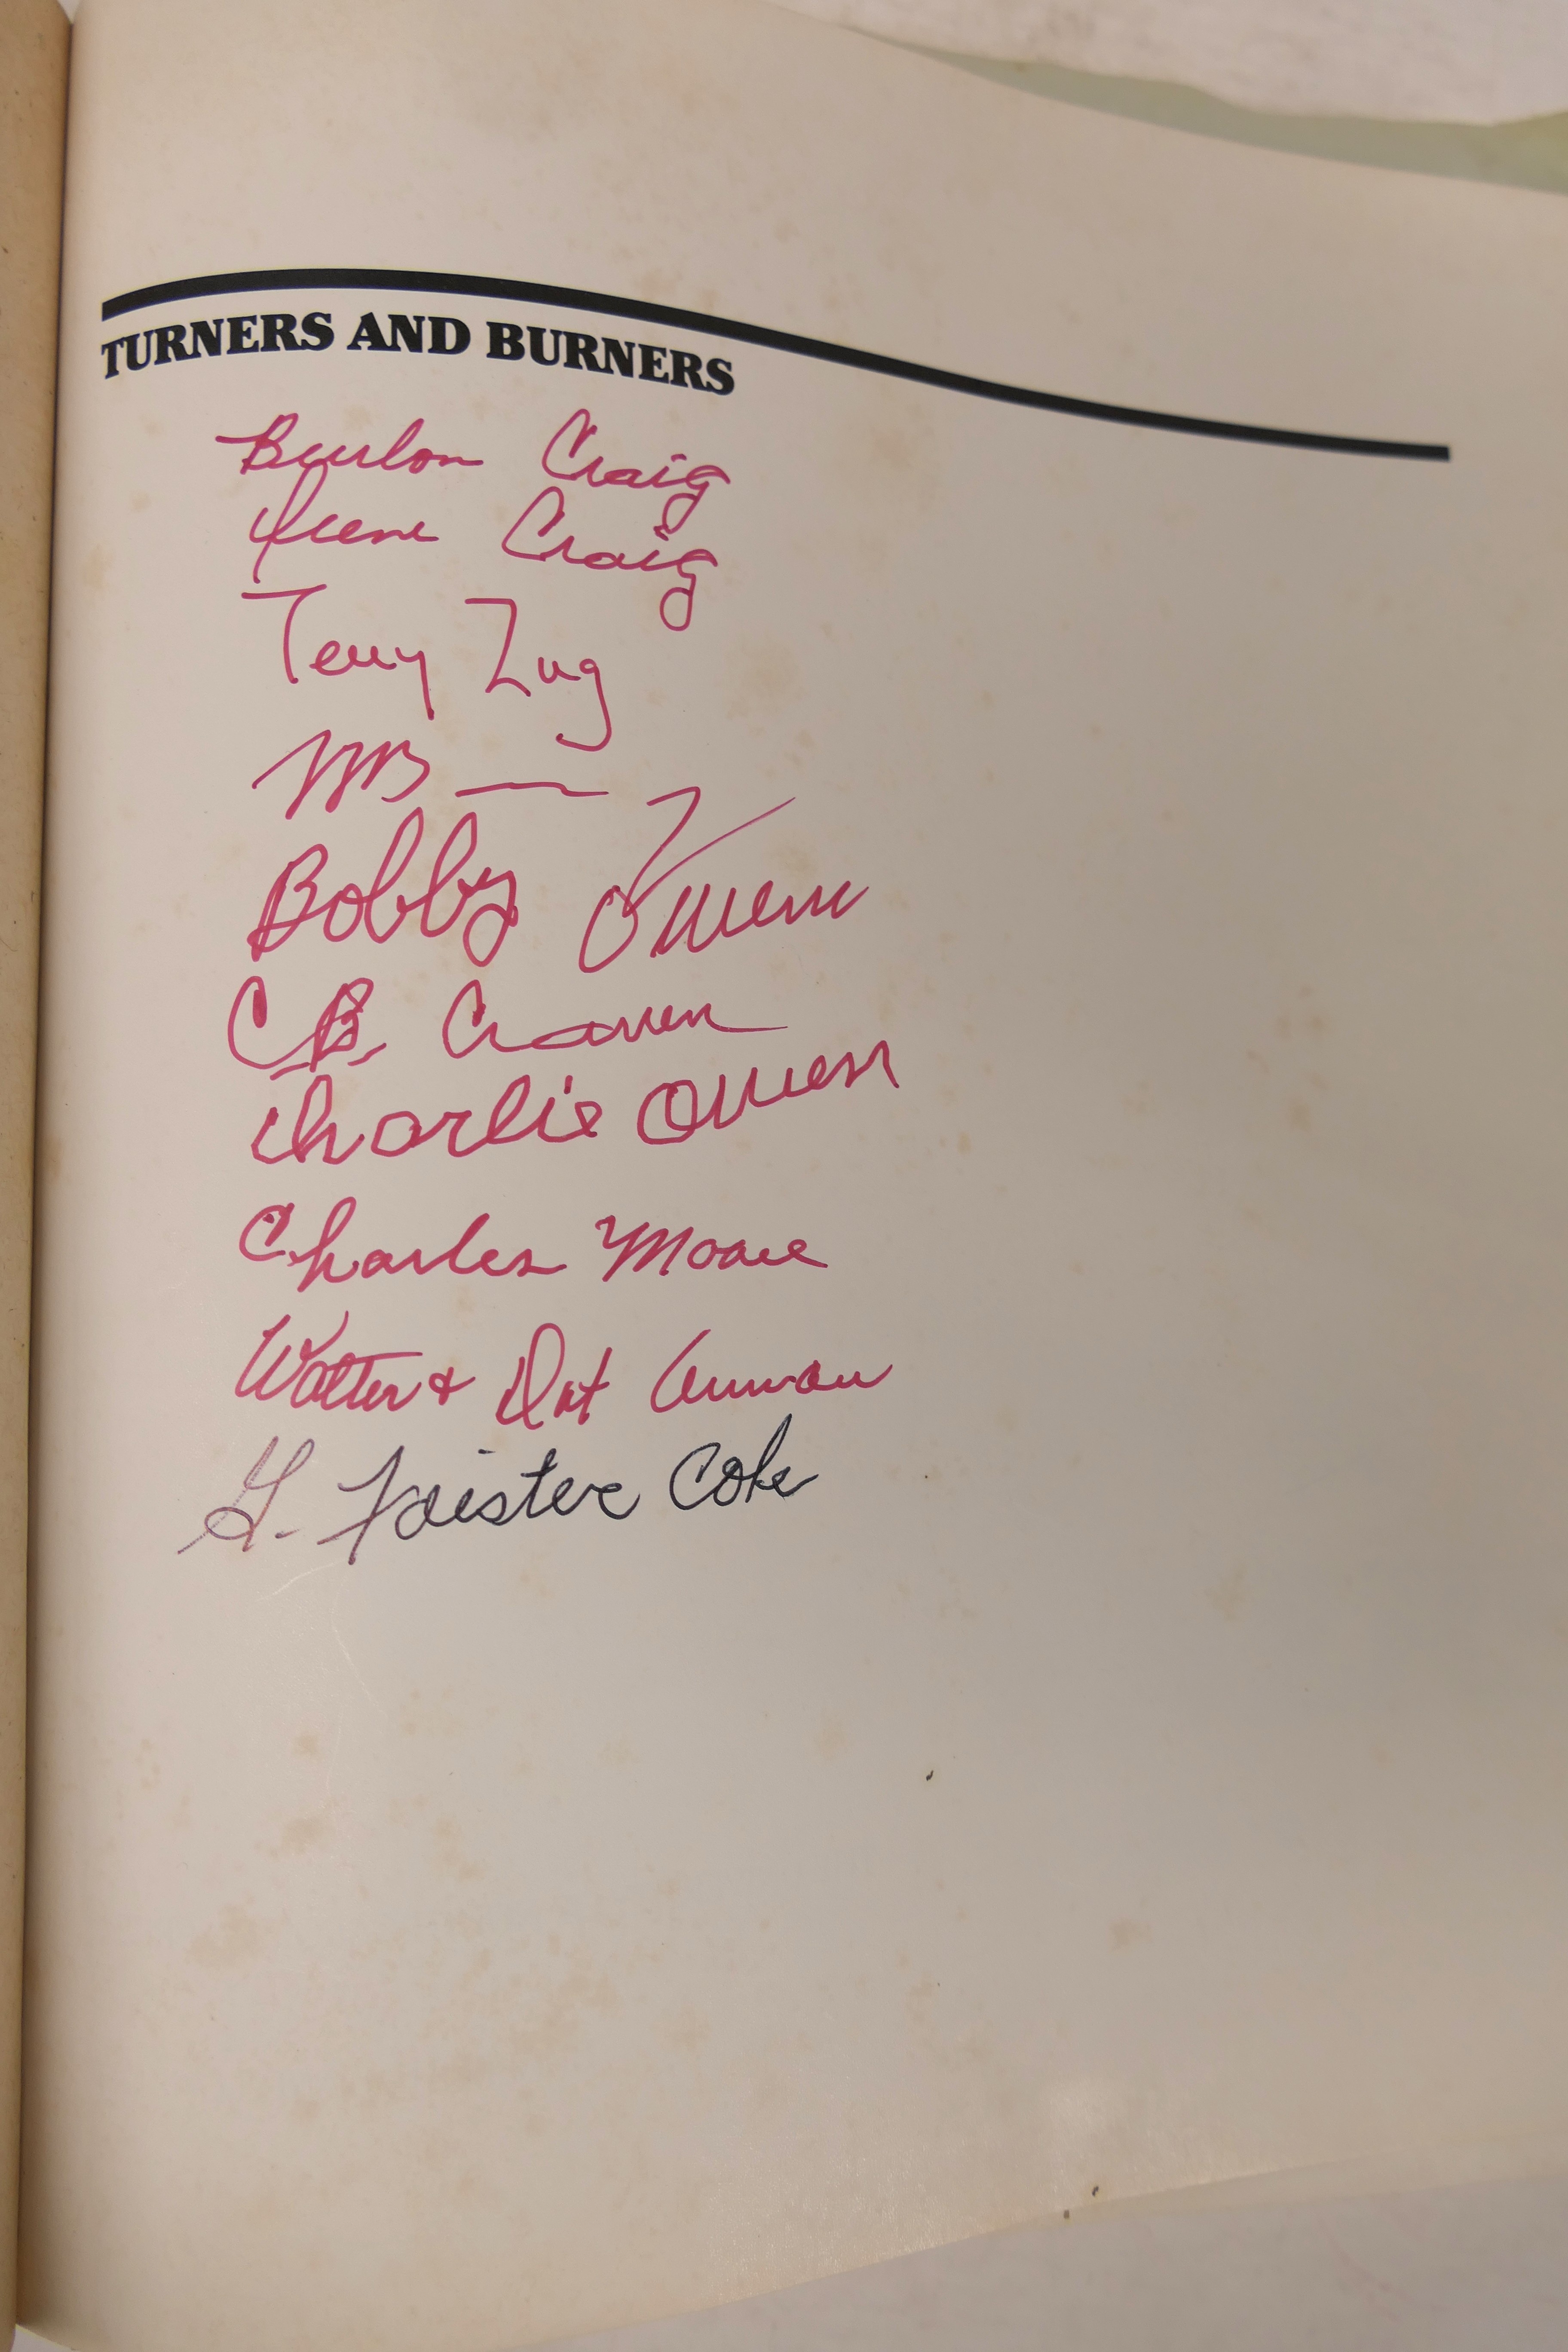 TURNERS AND BURNERS
Burlon Craig
Irene Craig
Terry Zug
Bobby Owens
CB Craven
Charlie Owen
Charles Moore
Walter & Dot Auman
G. Faister Cole